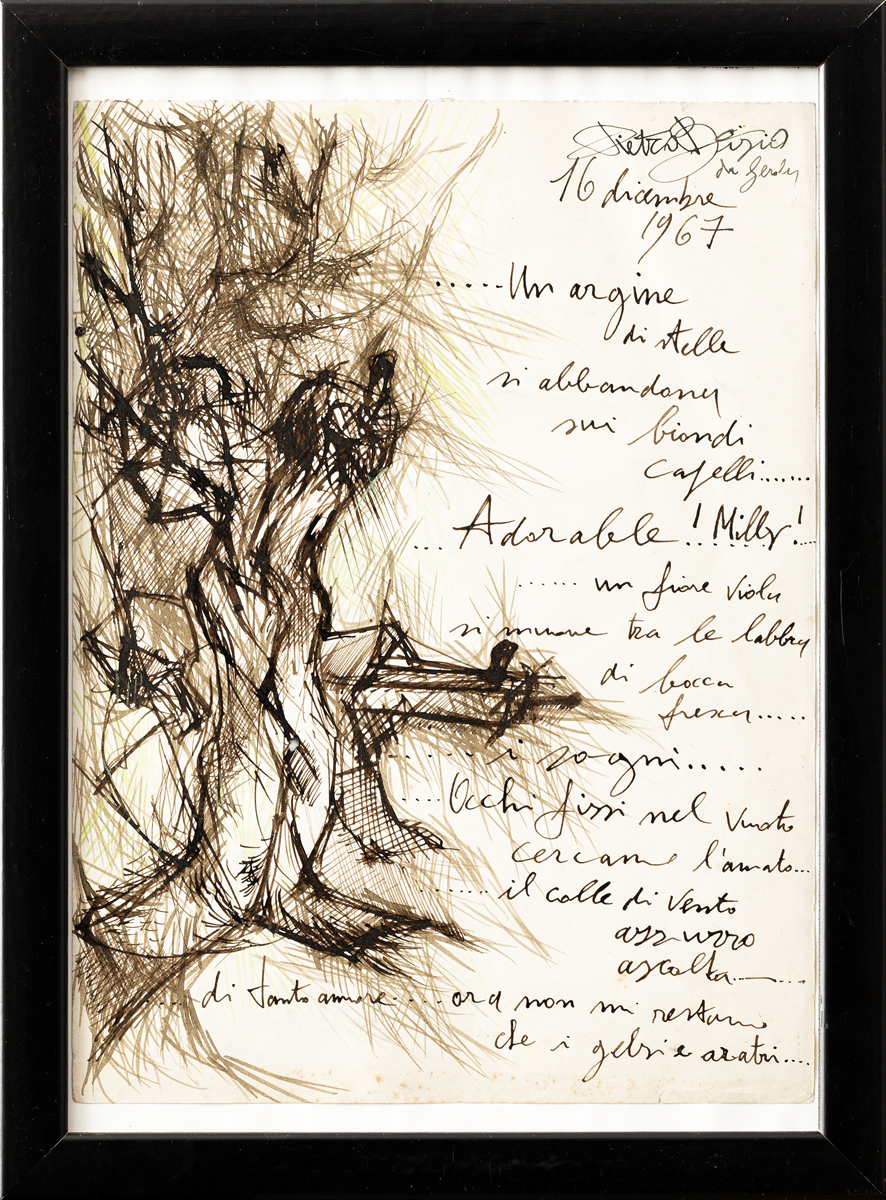 Pietro
16 dicembre
1967
.....Un argine
di stelle
si abbandona
sui biondi
capelli.......
... Adorable! Milly!...
...... un fiore viola
si muove tra le labbra
di bocca
fresca.....
...... i sogni.....
....Occhi fissi nel vuoto
cercano l'amato...
...... il colle di vento
azzurro
ascolta.......
....di tanto amore.....ora non mi restano
che i gelsi e aratri....